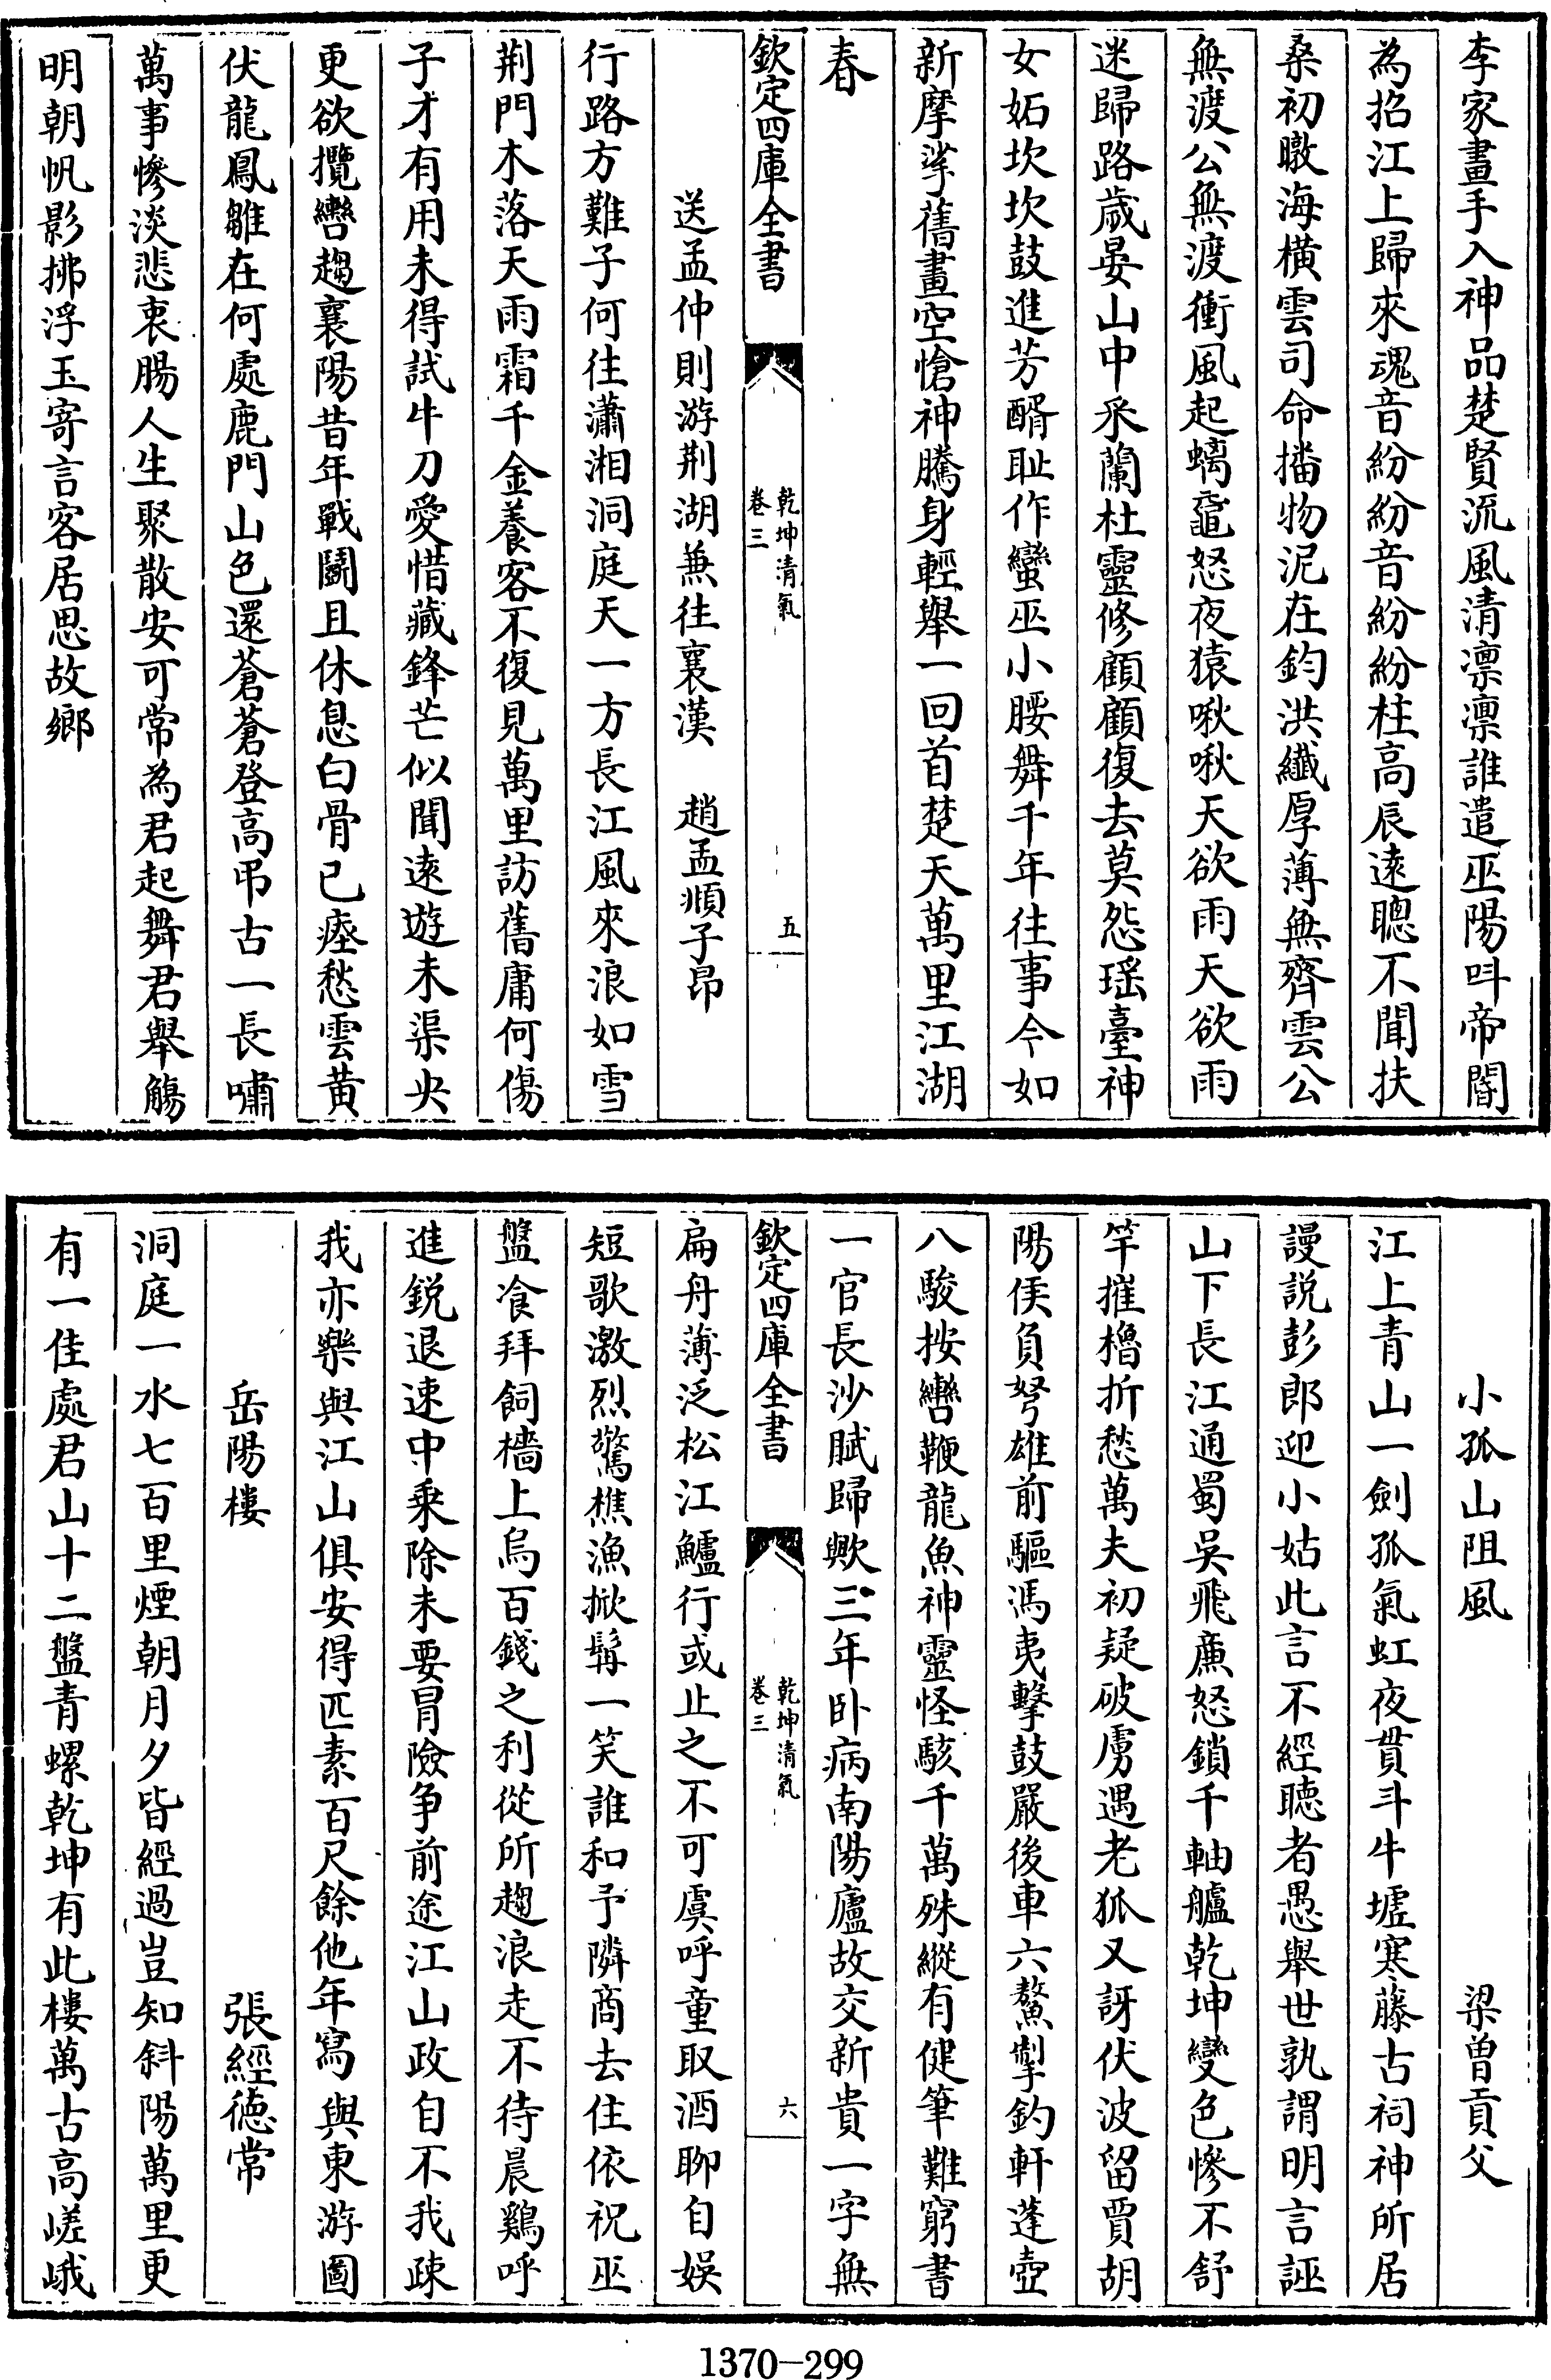 李家畫手入神品楚賢流風清凛凛誰遣巫陽呌帝閽
為招江上歸來魂音紛紛音紛紛柱高辰逺聰不聞扶
桑初暾海橫雲司命播物泥在鈞洪纎厚薄無齊雲公
無渡公無渡衝風起螭鼉怒夜猿啾啾天欲雨天欲雨
迷歸路歲晏山中采蘭杜靈修顧顧復去莫怨瑶臺神
女妬坎坎鼓進芳醑耻作蠻巫小腰舞千年往事今如
新摩挲舊畫空愴神騰身輕舉一回首楚天萬里江湖
春
欽定四庫全書
乾坤清氣
卷三
五
送孟仲則游荆湖兼往襄漢 趙孟頫子昂
行路方難子何往瀟湘洞庭天一方長江風來浪如雪
荆門木落天雨霜千金養客不復見萬里訪舊庸何傷
子才有用未得試牛刀愛惜藏鋒芒似聞逺遊未渠央
更欲攬轡趨襄陽昔年戰鬭且休息白骨已瘞愁雲黄
伏龍鳳雛在何處鹿門山色還蒼蒼登高弔古一長嘯
萬事慘淡悲衷腸人生聚散安可常為君起舞君舉觴
明朝帆影拂浮玉寄言客居思故鄉
小孤山阻風 梁曽貢父
江上青山一劍孤氣虹夜貫斗牛墟寒藤古祠神所居
謾説彭郎迎小姑此言不經聽者愚舉世孰謂明言誣
山下長江通蜀吳飛廉怒鎖千軸艫乾坤變色慘不舒
竿摧櫓折愁萬夫初疑破虜遇老狐又訝伏波留賈胡
陽侯負弩雄前驅馮夷擊鼓嚴後車六鰲掣釣軒蓬壺
八駿按轡鞭龍魚神靈怪駭千萬殊縱有健筆難窮書
一官長沙賦歸歟三年卧病南陽廬故交新貴一字無
欽定四庫全書
乾坤清氣
卷三
六
扁舟薄泛松江鱸行或止之不可虞呼童取酒聊自娱
短歌激烈驚樵漁掀髯一笑誰和予隣商去住依祝巫
盤飡拜飼檣上烏百錢之利從所趨浪走不待晨鷄呼
進鋭退速中乘除未要冒險争前途江山政自不我疎
我亦樂與江山俱安得匹素百尺餘他年寫與東游圖
岳陽樓 張經徳常
洞庭一水七百里煙朝月夕皆經過豈知斜陽萬里更
有一佳處君山十二盤青螺乾坤有此樓萬古髙嵯峨
1370-299